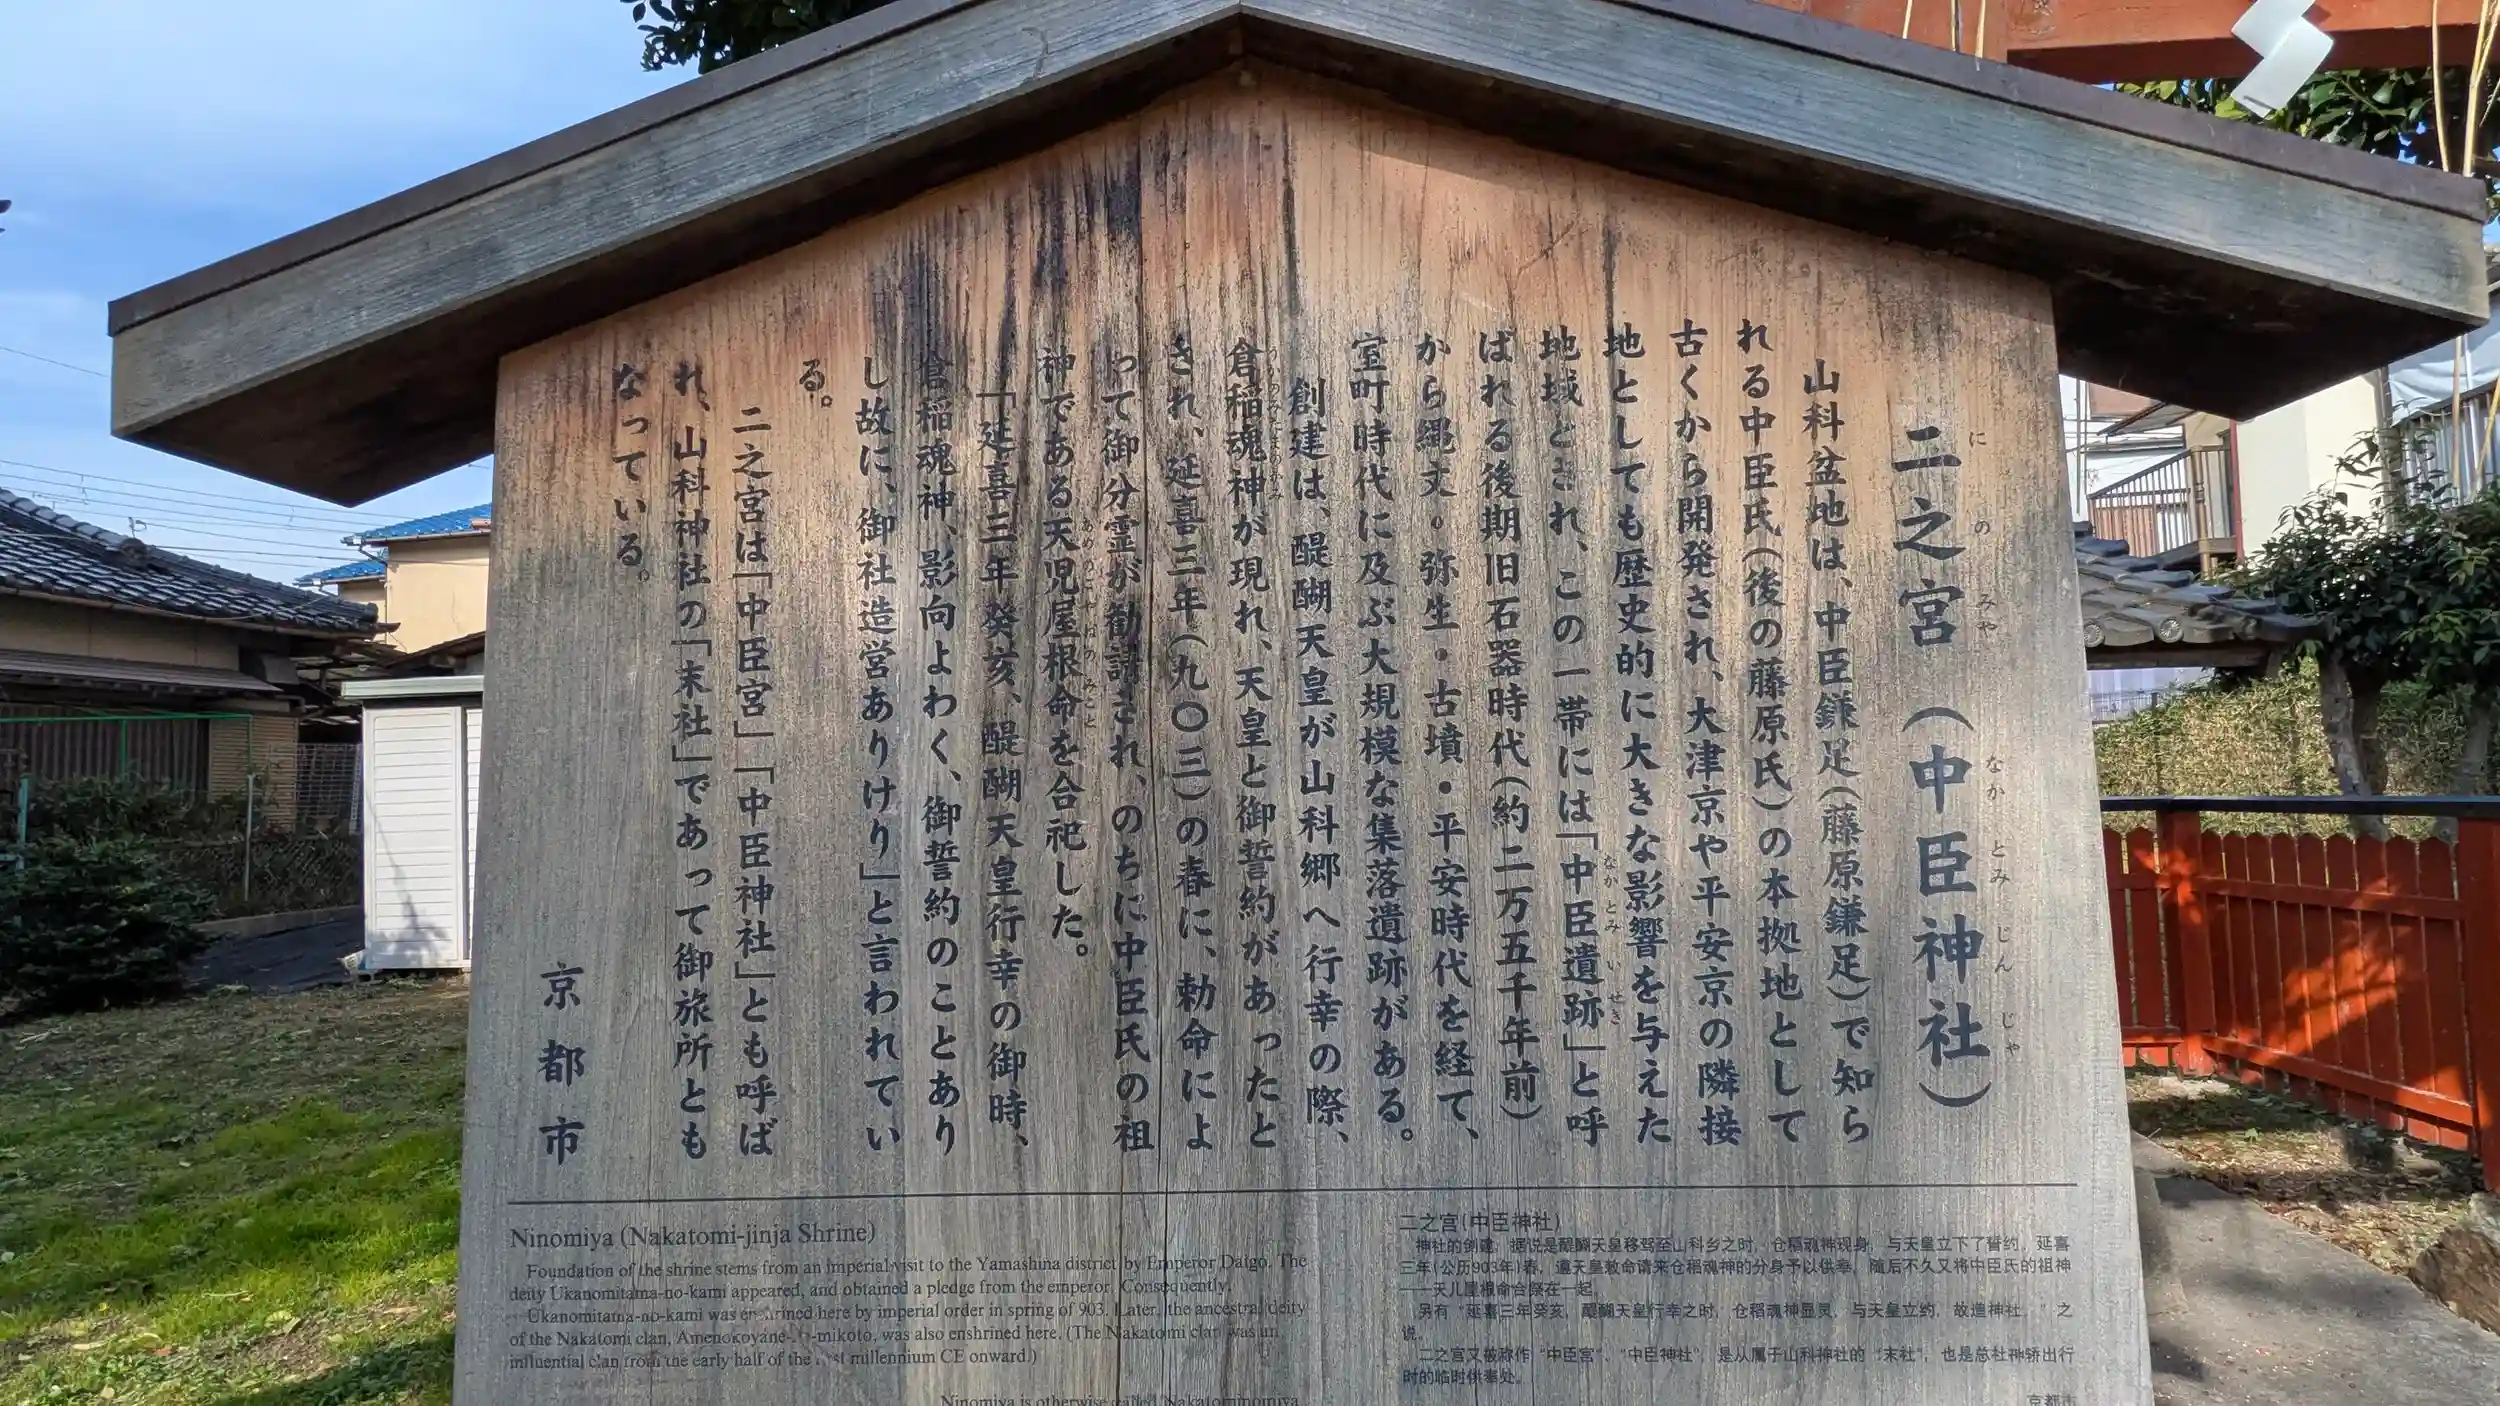 二之宮（中臣神社）
にのみや なかとみじんじゃ
山科盆地は、中臣鎌足（藤原鎌足）で知ら
れる中臣氏（後の藤原氏）の本拠地として
古くから開発され、大津京や平安京の隣接
地としても歴史的に大きな影響を与えた
地域とされ、この一帯には「中臣遺跡」と呼
なかとみいせき
ばれる後期旧石器時代（約二万五千年前）
から縄文・弥生・古墳・平安時代を経て、
室町時代に及ぶ大規模な集落遺跡がある。
創建は、醍醐天皇が山科郷へ行幸の際、
倉稲魂神が現れ、天皇と御誓約があったと
うかのみたまのかみ
され、延喜三年（九〇三）の春に、勅命によ
って御分霊が勧請され、のちに中臣氏の祖
神である天児屋根命を合祀した。
あめのこやねのみこと
「延喜三年癸亥、醍醐天皇行幸の御時、
倉稲魂神、影向よわく、御誓約のことあり
し故に、御社造営ありけり」と言われてい
る。
二之宮は「中臣宮」「中臣神社」とも呼ば
れ、山科神社の「末社」であって御旅所とも
なっている。
京都市
Ninomiya (Nakatomi-jinja Shrine)
Foundation of the shrine stems from an imperial visit to the Yamashina district by Emperor Daigo. The
deity Ukanomitama-no-kami appeared, and obtained a pledge from the emperor. Consequently,
Ukanomitama-no-kami was enshrined here by imperial order in spring of 903. Later, the ancestral deity
of the Nakatomi clan, Amenokoyane- -mikoto, was also enshrined here. (The Nakatomi clan was an
influential clan from the early half of the first millennium CE onward.)
Ninomiya is otherwise called Nakatominomiya
二之宫(中臣神社)
神社的创建，据说是醍醐天皇移驾至山科乡之时，仓稻魂神现身，与天皇立下了誓约，延喜
三年(公历903年)春，遵天皇敕命请来仓稻魂神的分身予以供奉，随后不久又将中臣氏的祖神
——天儿屋根命合祭在一起。
另有“延喜三年癸亥，醍醐天皇行幸之时，仓稻魂神显灵，与天皇立约，故造神社。”之
说。
二之宫又被称作“中臣宫”、“中臣神社”，是从属于山科神社的“末社”，也是总社神轿出行
时的临时供奉处。
京都市